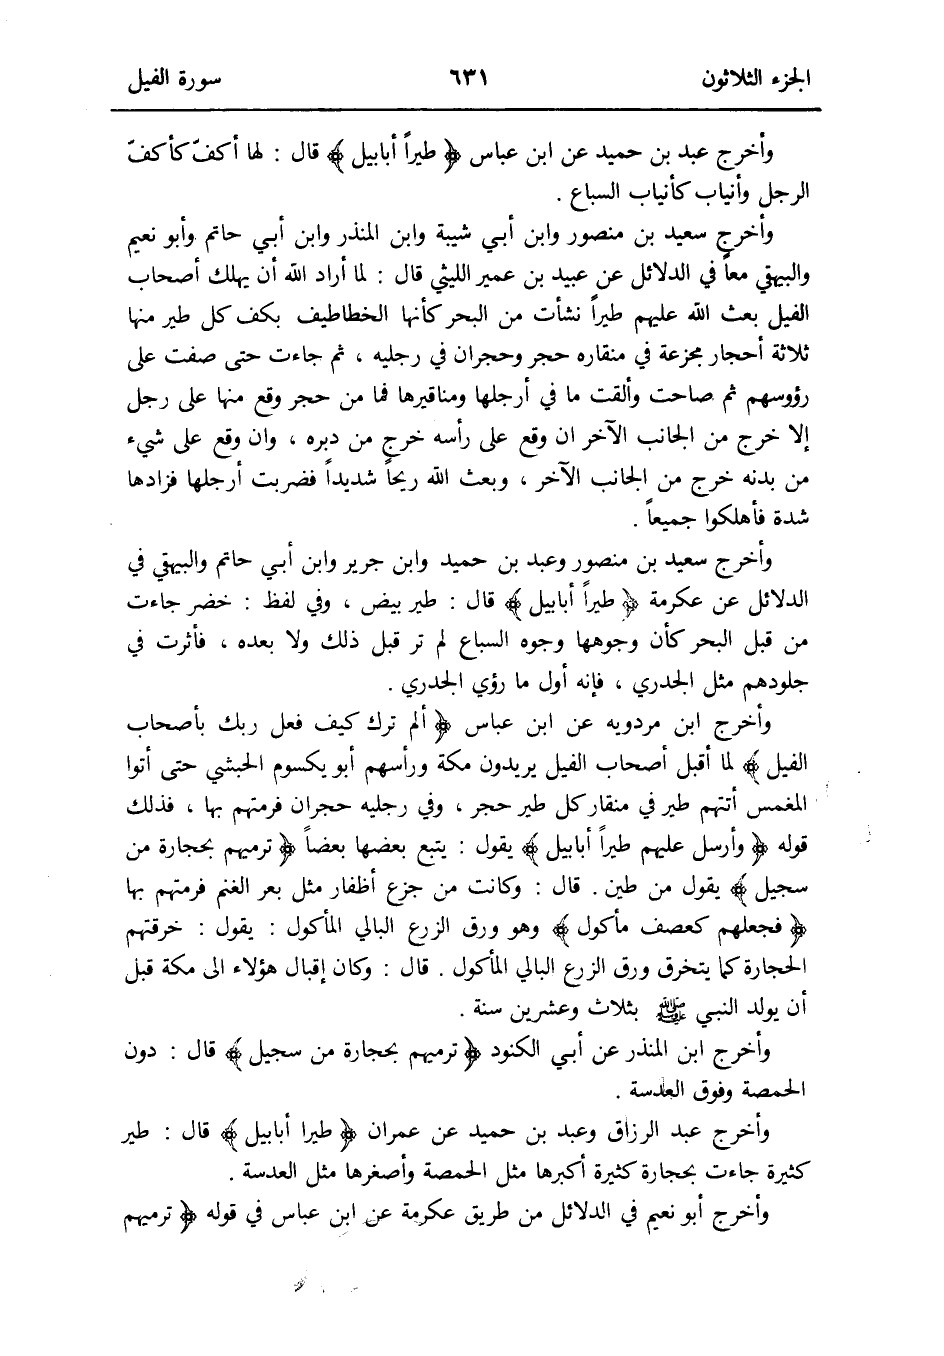 الجزء الثلاثون ٦٣١ سورة الفيل
وأخرج عبد بن حميد عن ابن عباس ﴿ طيراً أبابيل ﴾ قال : لها أكفّ كأكفّ
الرجل وأنياب كأنياب السباع .
وأخرج سعيد بن منصور وابن أبي شيبة وابن المنذر وابن أبي حاتم وأبو نعيم
والبيهقي معاً في الدلائل عن عبيد بن عمير الليثي قال : لما أراد الله أن يهلك أصحاب
الفيل بعث الله عليهم طيراً نشأت من البحر كأنها الخطاطيف بكف كل طير منها
ثلاثة أحجار مجزعة في منقاره حجر وحجران في رجليه ، ثم جاءت حتى صفت على
رؤوسهم ثم صاحت وألقت ما في أرجلها ومناقيرها فما من حجر وقع منها على رجل
إلا خرج من الجانب الآخر ان وقع على رأسه خرج من دبره ، وان وقع على شيء
من بدنه خرج من الجانب الآخر ، وبعث الله ريحاً شديداً فضربت أرجلها فزادها
شدة فأهلكوا جميعاً .
وأخرج سعيد بن منصور وعبد بن حميد وابن جرير وابن أبي حاتم والبيهقي في
الدلائل عن عكرمة ﴿ طيراً أبابيل ﴾ قال : طير بيض ، وفي لفظ : خضر جاءت
من قبل البحر كأن وجوهها وجوه السباع لم تر قبل ذلك ولا بعده ، فأثرت في
جلودهم مثل الجدري ، فإنه أول ما رؤي الجدري .
وأخرج ابن مردويه عن ابن عباس ﴿ ألم ترك كيف فعل ربك بأصحاب
الفيل ﴾ لما أقبل أصحاب الفيل يريدون مكة ورأسهم أبو يكسوم الحبشي حتى أتوا
المغمس أتتهم طير في منقار كل طير حجر ، وفي رجليه حجران فرمتهم بها ، فذلك
قوله ﴿ وأرسل عليهم طيراً أبابيل ﴾ يقول : يتبع بعضها بعضاً ﴿ ترميهم بحجارة من
سجيل ﴾ يقول من طين . قال : وكانت من جزع أظفار مثل بعر الغنم فرمتهم بها
﴿ فجعلهم كعصف مأكول ﴾ وهو ورق الزرع البالي المأكول : يقول : خرقتهم
الحجارة كما يتخرق ورق الزرع البالي المأكول . قال : وكان إقبال هؤلاء الى مكة قبل
أن يولد النبي ﷺ بثلاث وعشرين سنة .
وأخرج ابن المنذر عن أبي الكنود ﴿ ترميهم بحجارة من سجيل ﴾ قال : دون
الحمصة وفوق العدسة .
وأخرج عبد الرزاق وعبد بن حميد عن عمران ﴿ طيرا أبابيل ﴾ قال : طير
كثيرة جاءت بحجارة كثيرة أكبرها مثل الحمصة وأصغرها مثل العدسة .
وأخرج أبو نعيم في الدلائل من طريق عكرمة عن ابن عباس في قوله ﴿ ترميهم